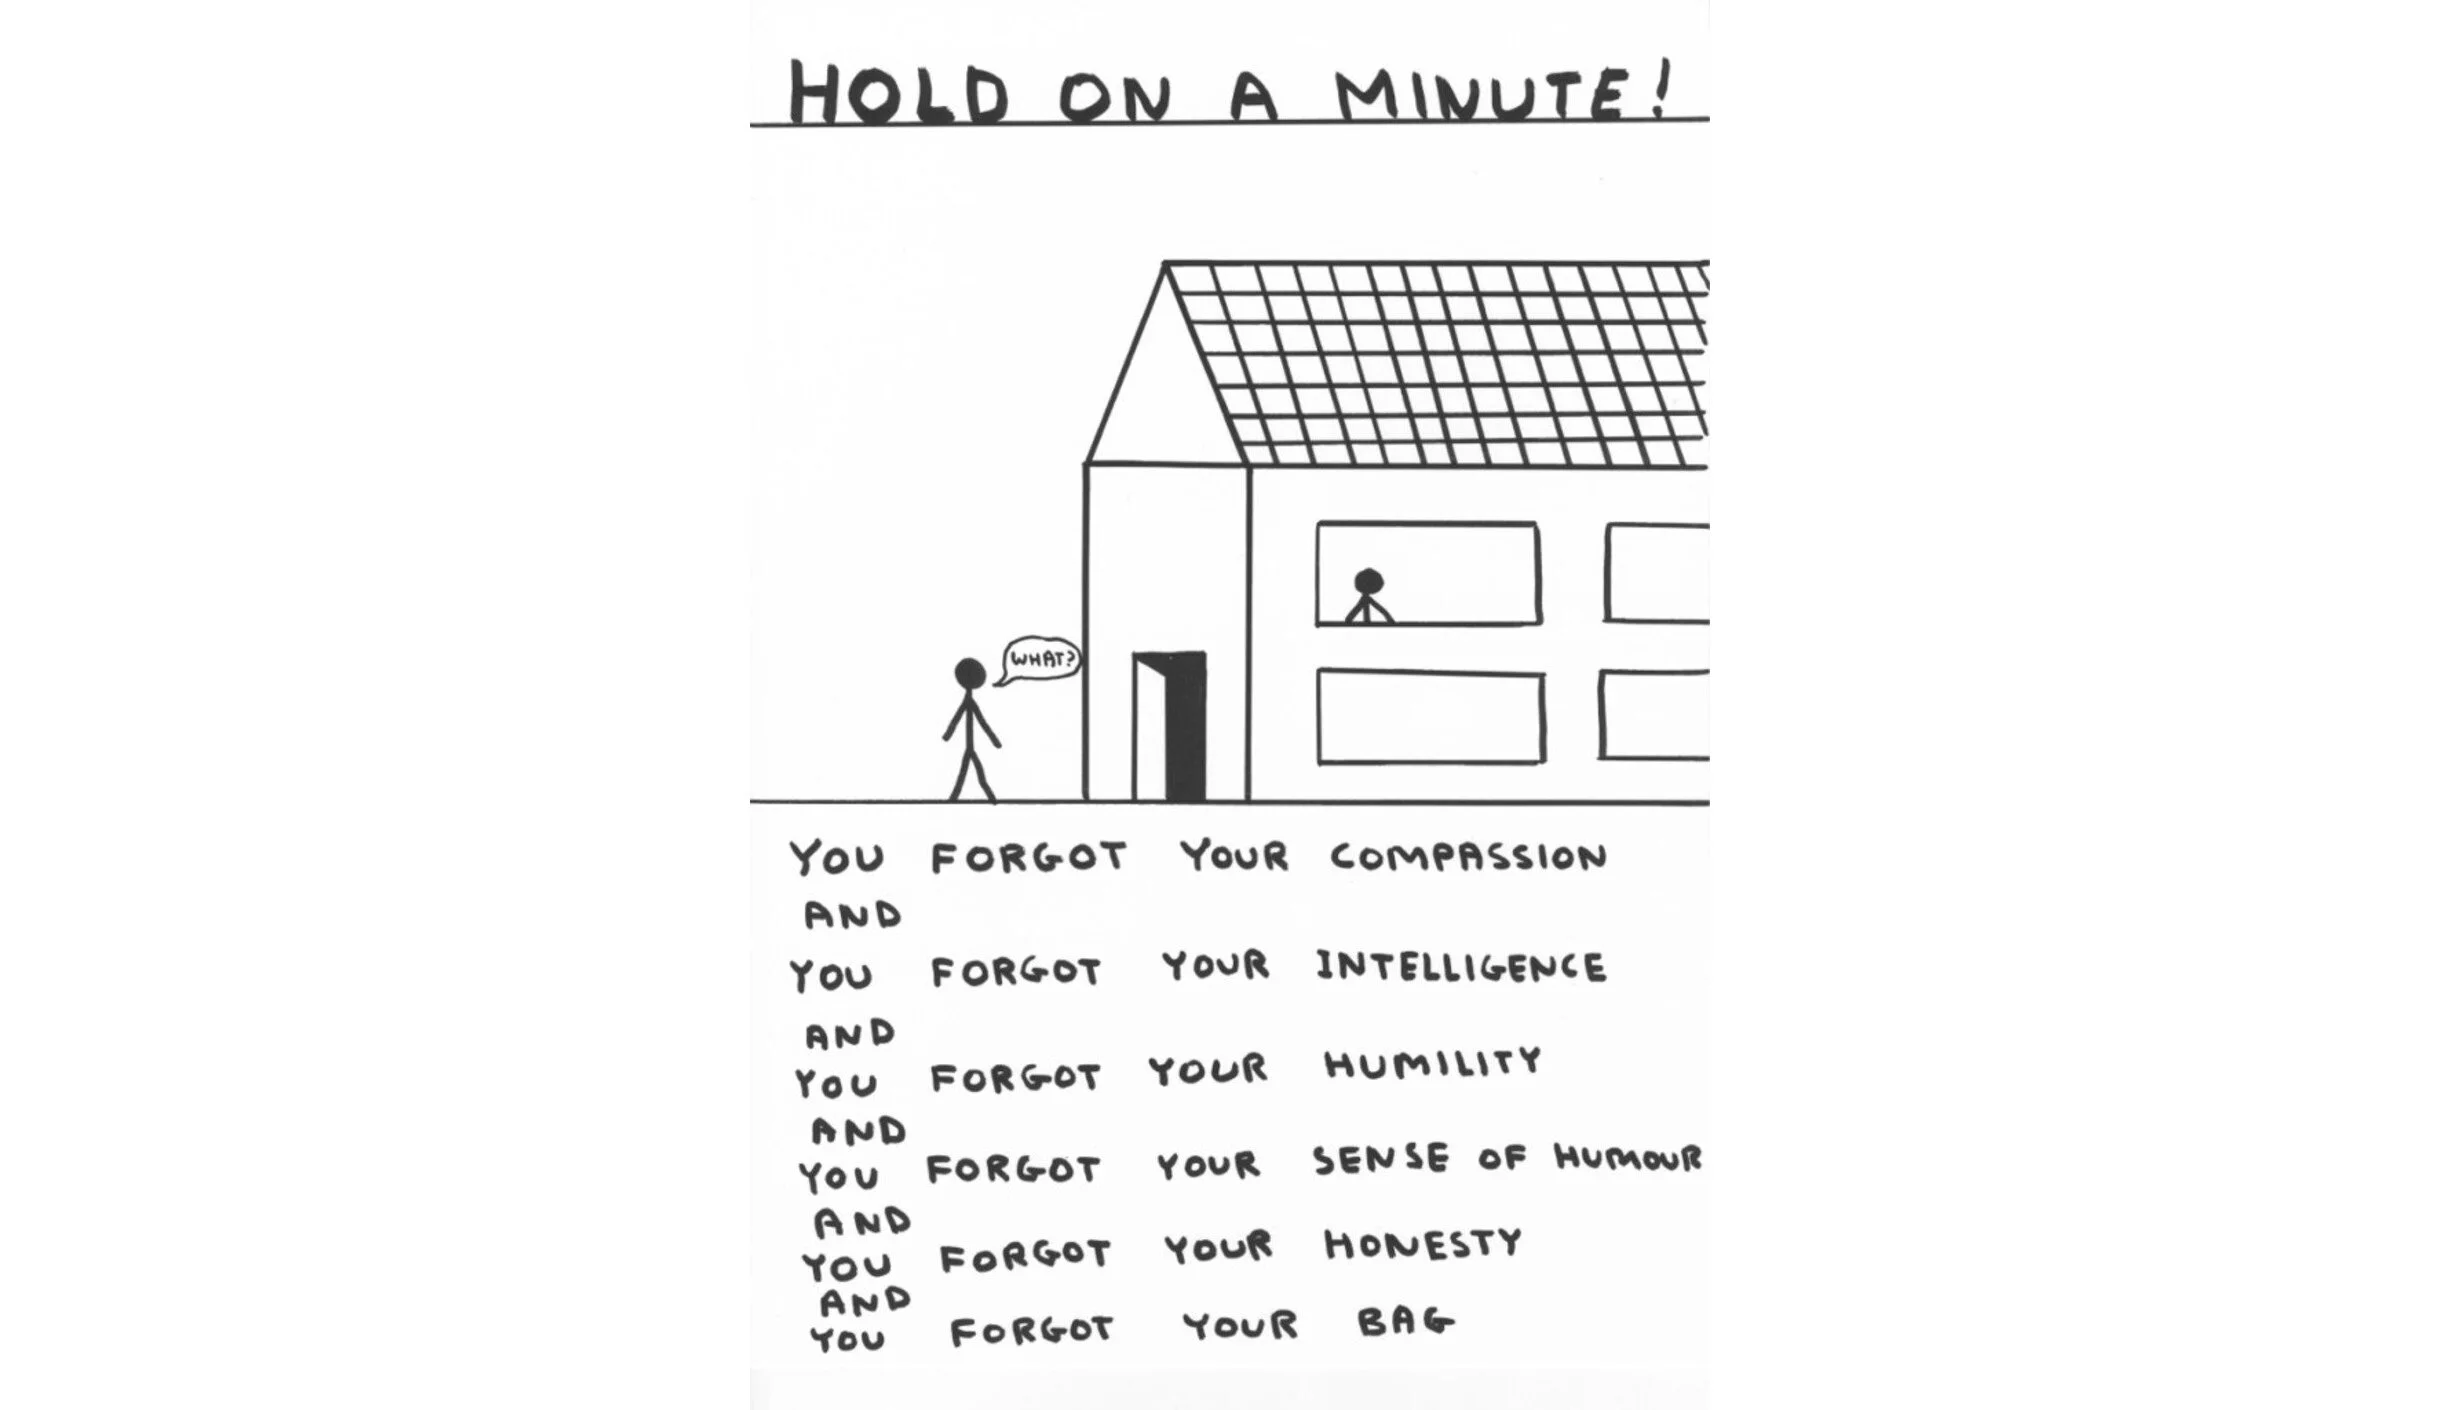 HOLD ON A MINUTE!
WHAT?
YOU FORGOT YOUR COMPASSION
AND
YOU FORGOT YOUR INTELLIGENCE
AND
YOU FORGOT YOUR HUMILITY
AND
YOU FORGOT YOUR SENSE OF HUMOUR
AND
YOU FORGOT YOUR HONESTY
AND
YOU FORGOT YOUR BAG